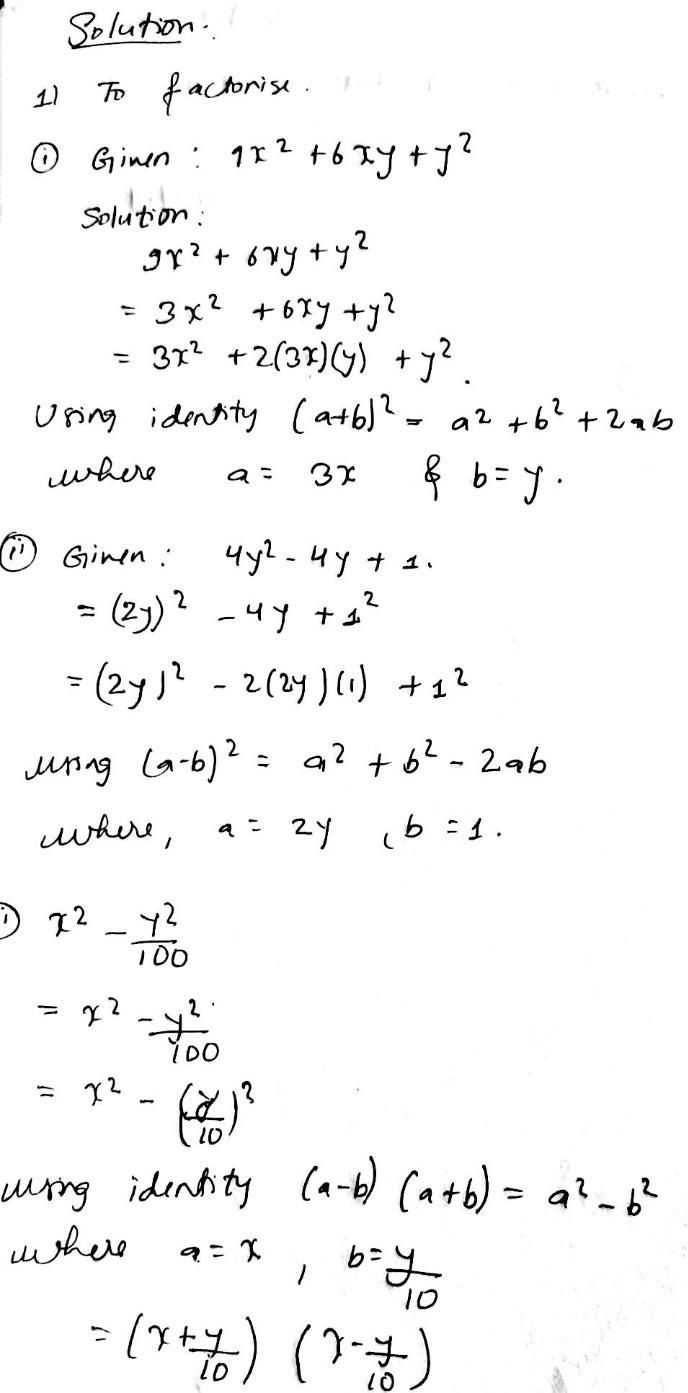 Solution.
1) To factorise.
(i) Given : 9x² + 6xy + y²
Solution:
9x² + 6xy + y²
= 3x² + 6xy + y²
= 3x² + 2(3x)(y) + y².
Using identity (a+b)² = a² + b² + 2ab
where a = 3x & b = y.
(ii) Given : 4y² - 4y + 1.
= (2y)² - 4y + 1²
= (2y)² - 2(2y)(1) + 1²
using (a-b)² = a² + b² - 2ab
where, a = 2y , b = 1.
i) x² - y²/100
= x² - y²/100
= x² - (y/10)²
using identity (a-b) (a+b) = a² - b²
where a = x , b = y/10
= (x + y/10) (x - y/10)